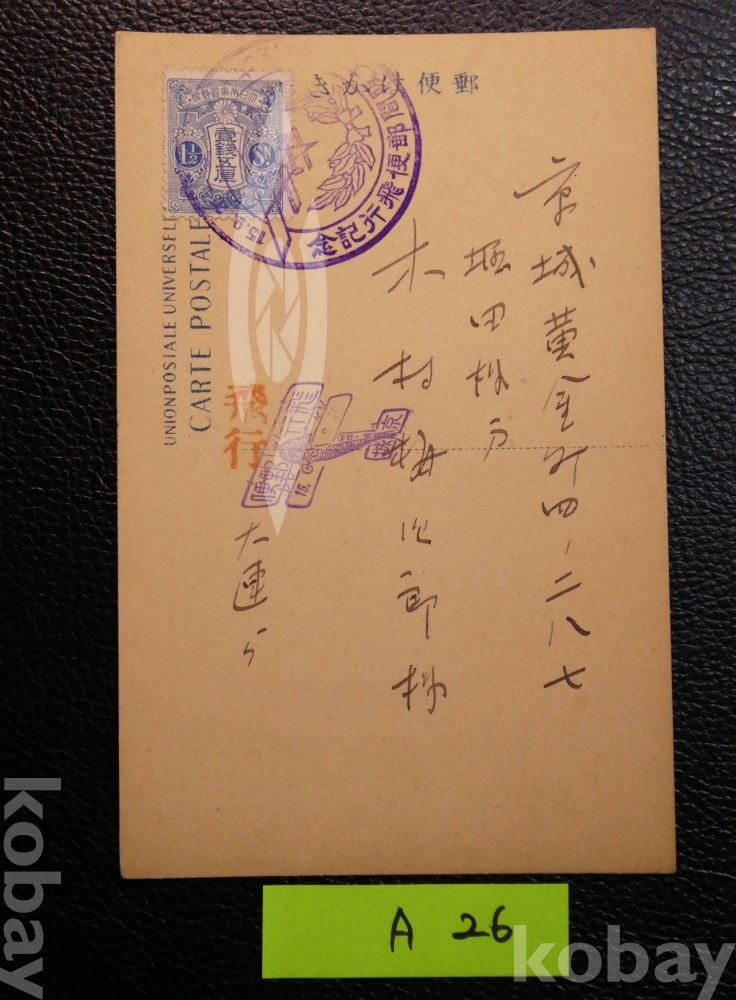 きかは便郵
間郵便飛行記念
15.9
大日本帝国郵便
壹錢五厘
1½ Sn.
UNION POSTALE UNIVERSELLE
CARTE POSTALE
京城黄金町四、二八七
堀田様方
木村梅次郎様
飛行
飛行
郵便
京城
15.
大連ゟ
A 26
kobay
kobay